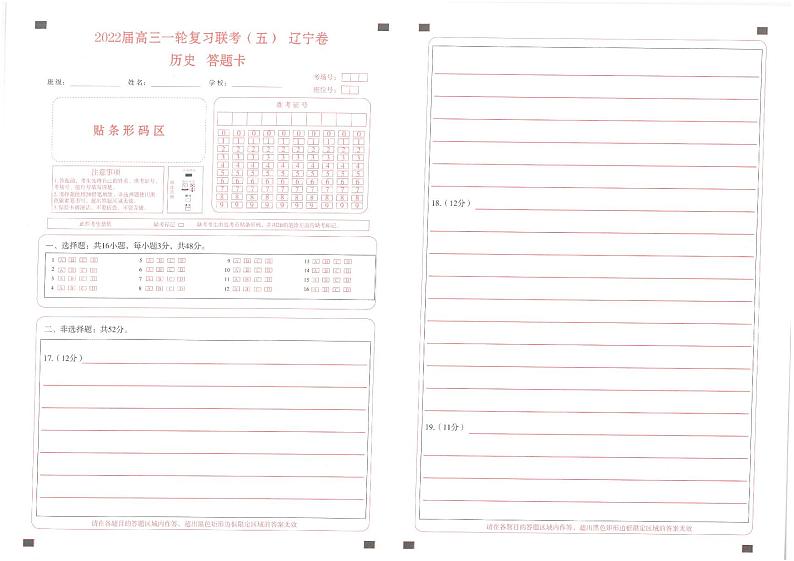 2022届高三一轮复习联考（五） 辽宁卷
历史 答题卡
班级：
姓名：
学校：
考场号：
座位号：
贴条形码区
准考证号
0 0 0 0 0 0 0 0 0 0
1 1 1 1 1 1 1 1 1 1
2 2 2 2 2 2 2 2 2 2
3 3 3 3 3 3 3 3 3 3
4 4 4 4 4 4 4 4 4 4
5 5 5 5 5 5 5 5 5 5
6 6 6 6 6 6 6 6 6 6
7 7 7 7 7 7 7 7 7 7
8 8 8 8 8 8 8 8 8 8
9 9 9 9 9 9 9 9 9 9
注意事项
此栏考生禁填
缺考标记
一、选择题：共16小题，每小题3分，共48分。
1 A B C D 5 A B C D 9 A B C D 13 A B C D
2 A B C D 6 A B C D 10 A B C D 14 A B C D
3 A B C D 7 A B C D 11 A B C D 15 A B C D
4 A B C D 8 A B C D 12 A B C D 16 A B C D
二、非选择题：共52分。
17.（12分）
请在各题目的答题区域内作答，超出黑色矩形边框限定区域的答案无效
18.（12分）
19.（11分）
请在各题目的答题区域内作答，超出黑色矩形边框限定区域的答案无效